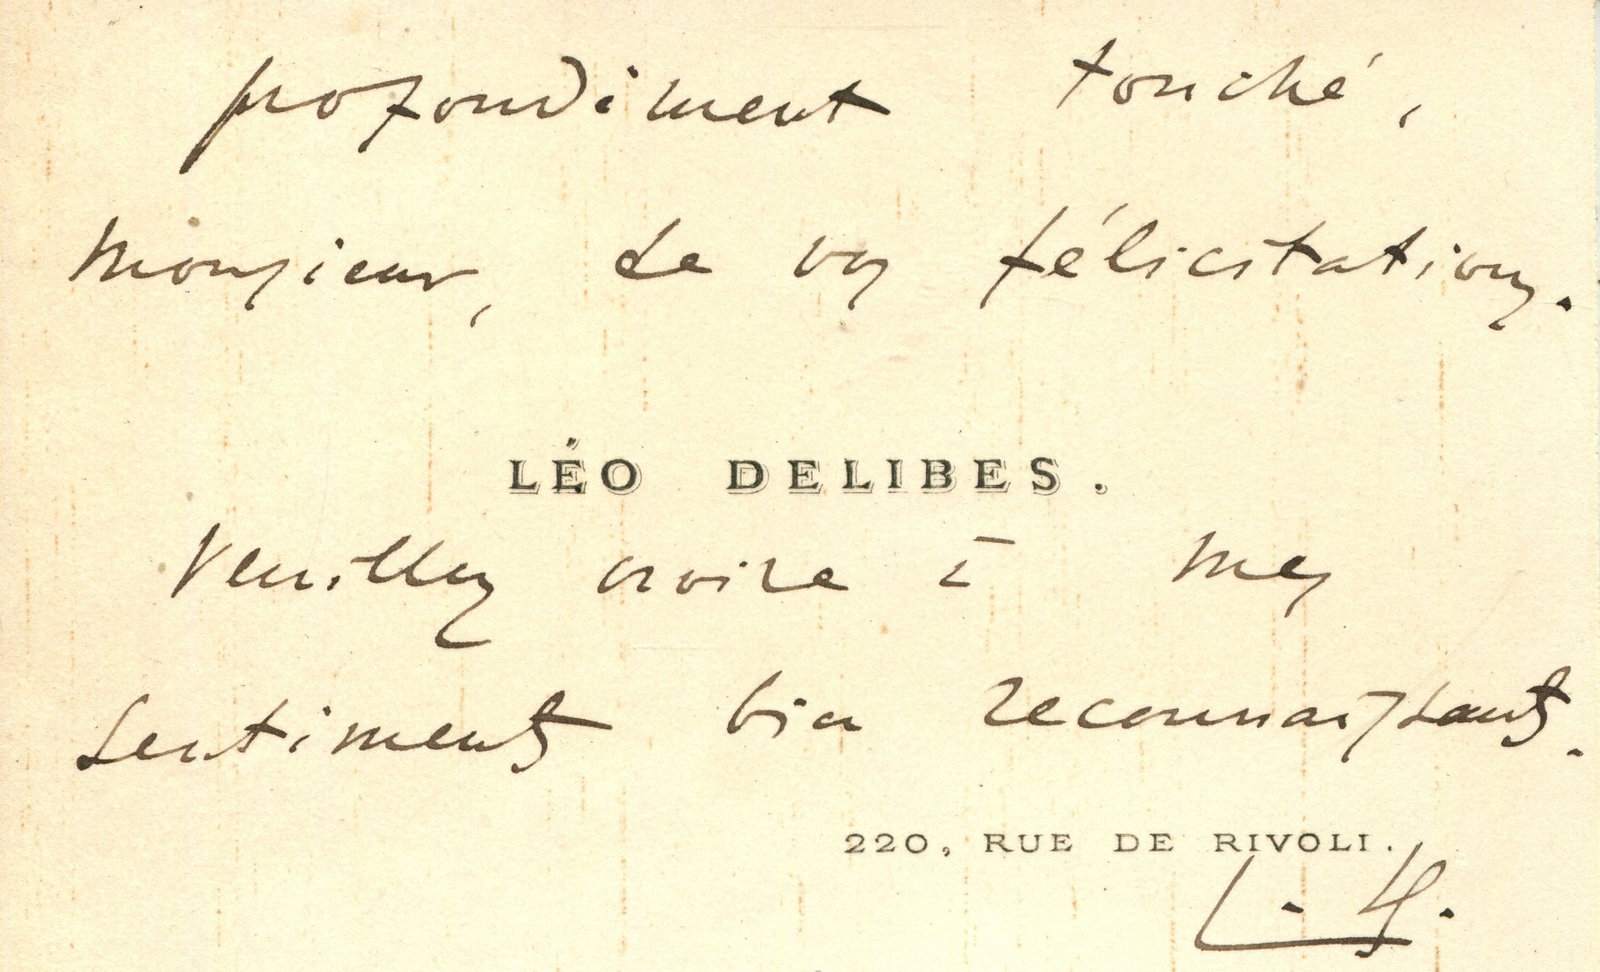 profondément touché,
Monsieur, de vos félicitations.
LÉO DELIBES.
Veuillez croire à mes
sentiments bien reconnaissants.
220, RUE DE RIVOLI.
L. D.